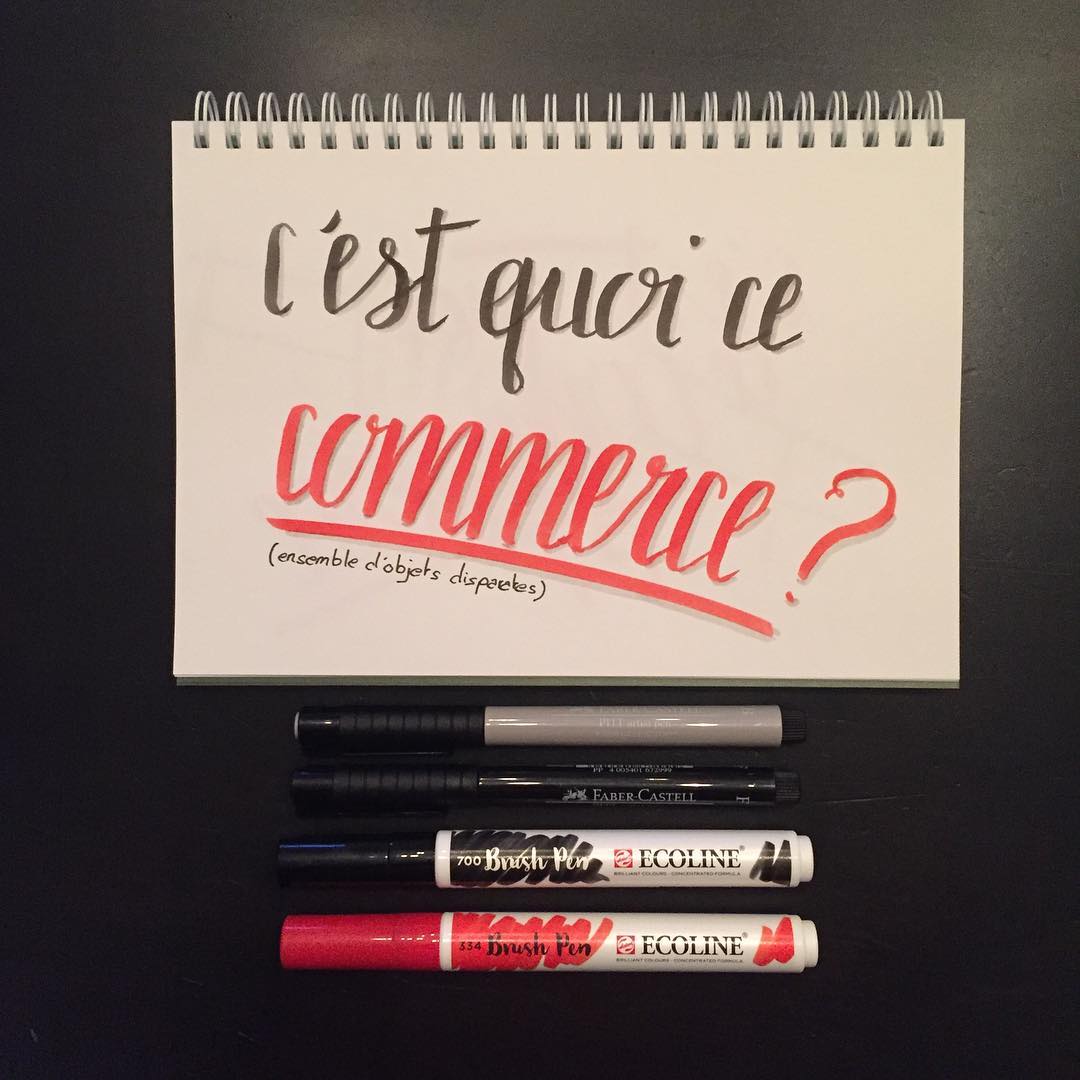 c'est quoi ce
commerce ?
(ensemble d'objets disparates)
FABER-CASTELL
PITT artist pen
PP 4 005401 672999
FABER-CASTELL F
700 Brush Pen ECOLINE
BRILLIANT COLOURS - CONCENTRATED FORMULA
334 Brush Pen ECOLINE
BRILLIANT COLOURS - CONCENTRATED FORMULA